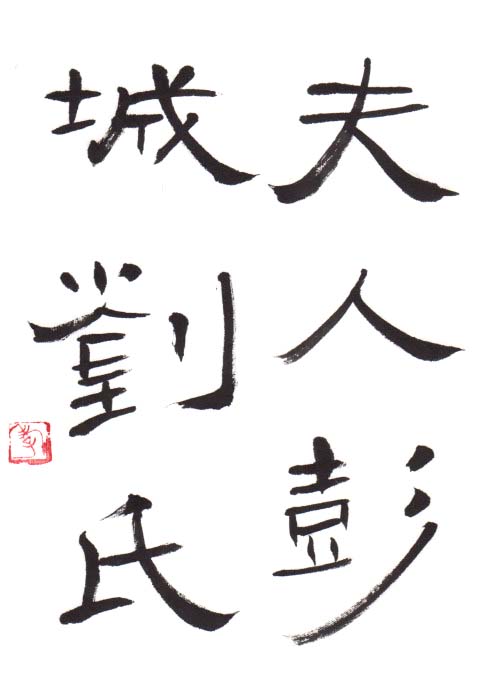 夫人彭
城劉氏